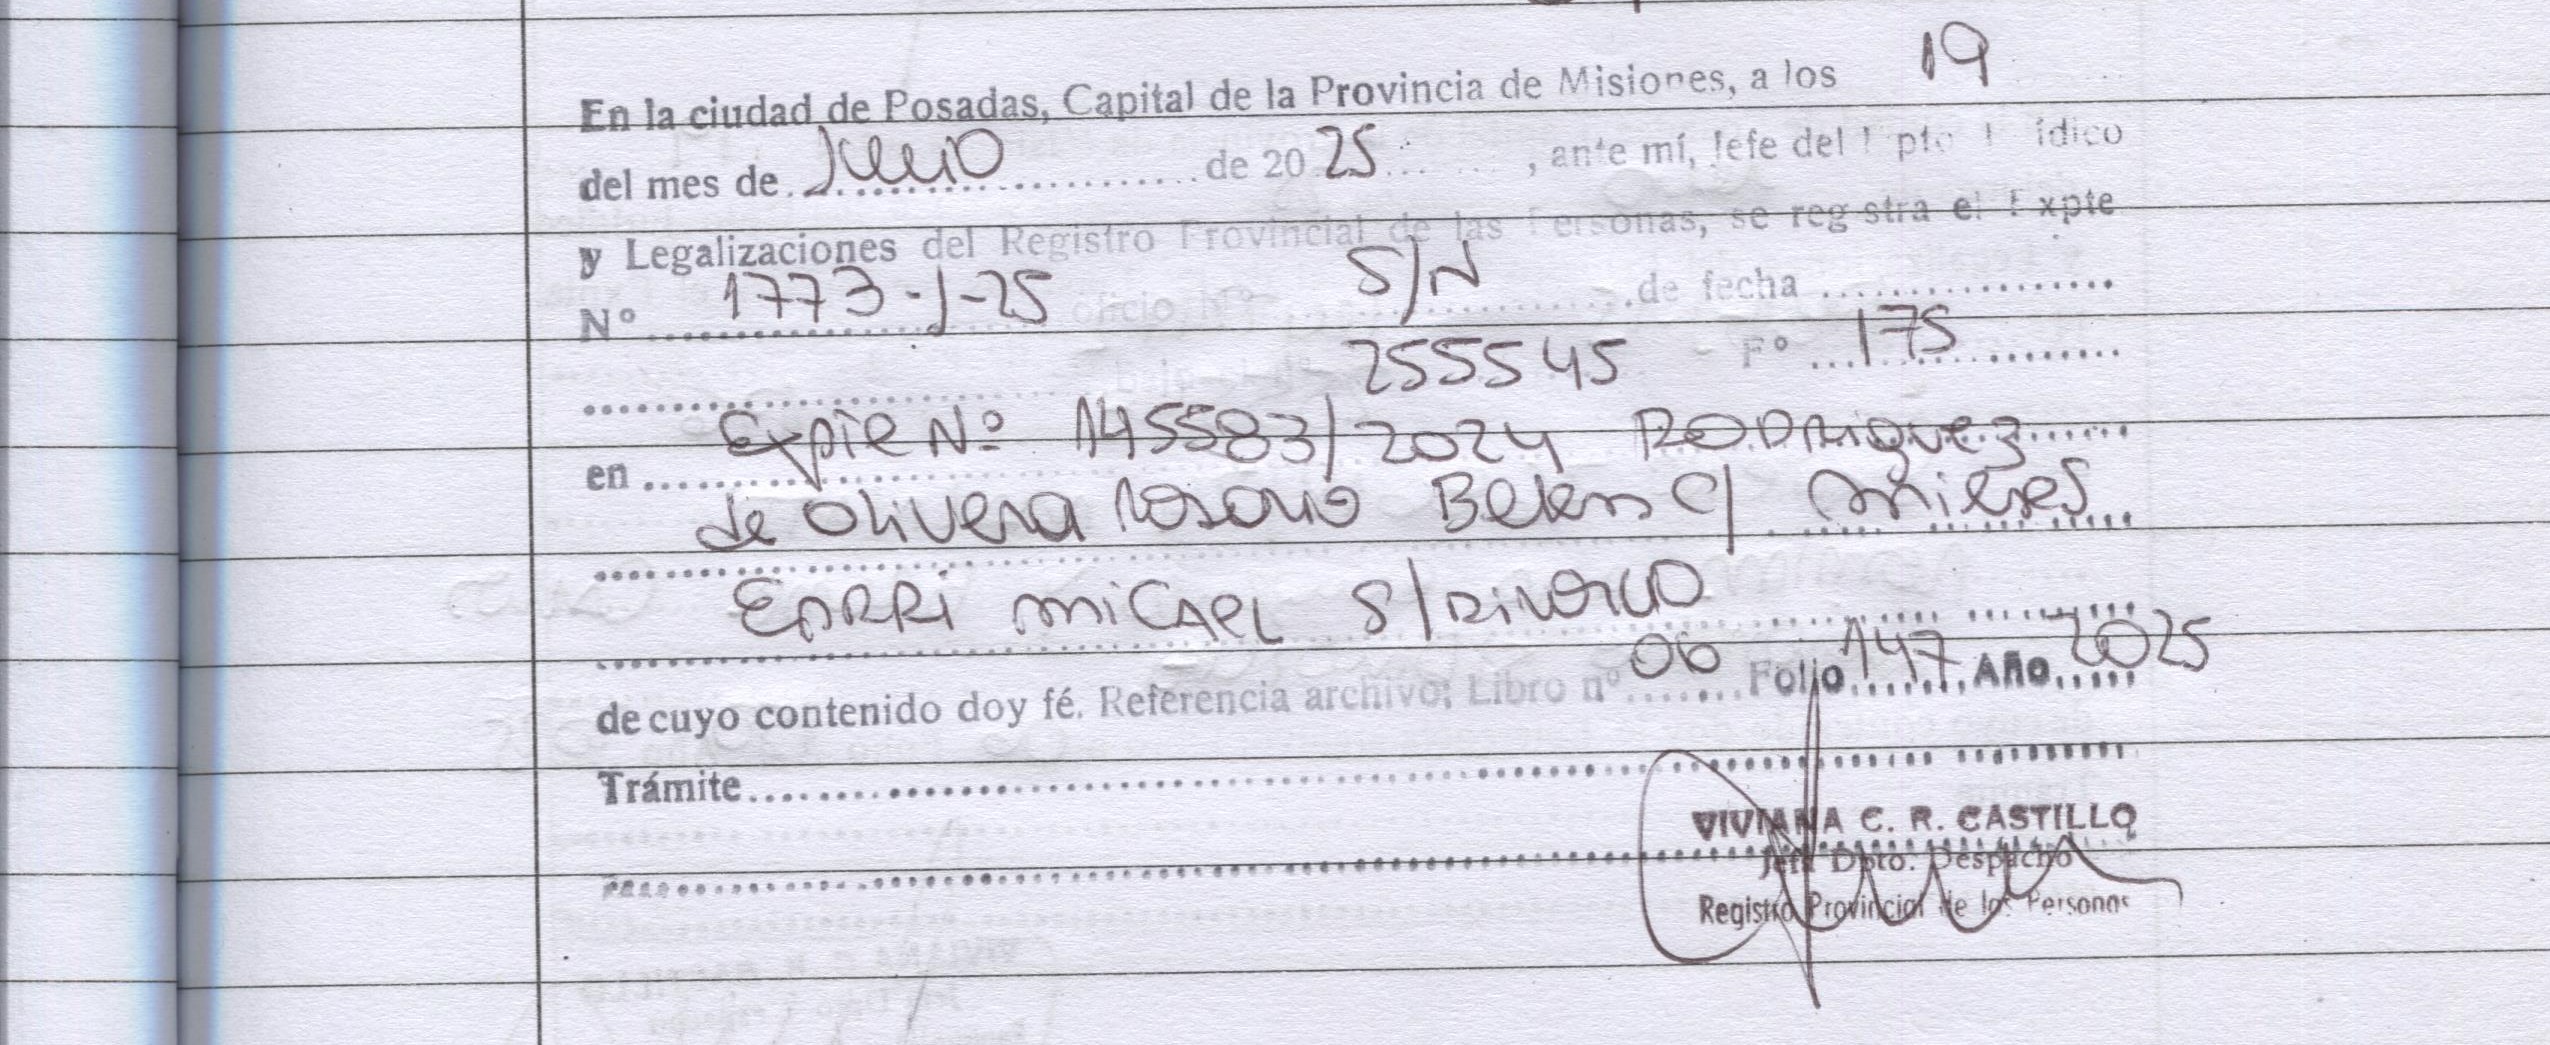 En la ciudad de Posadas, Capital de la Provincia de Misiones, a los 19
del mes de Junio de 20 25, ante mí, Jefe del Dpto Jurídico
y Legalizaciones del Registro Provincial de las Personas, se registra el Expte
Nº 1773-J-25 oficio Nº S/N de fecha
bajo el nº 255545 Fº 175
en Expte Nº 145583/2024 RODRIGUEZ
de OLIVERA ROSARIO BELEN C/
MICAEL S/DIVORCIO
de cuyo contenido doy fé. Referencia archivo; Libro nº 06 Folio 147 Año 2025
Trámite
VIVIANA C. R. CASTILLO
Jefa Dpto. Despacho
Registro Provincial de las Personas